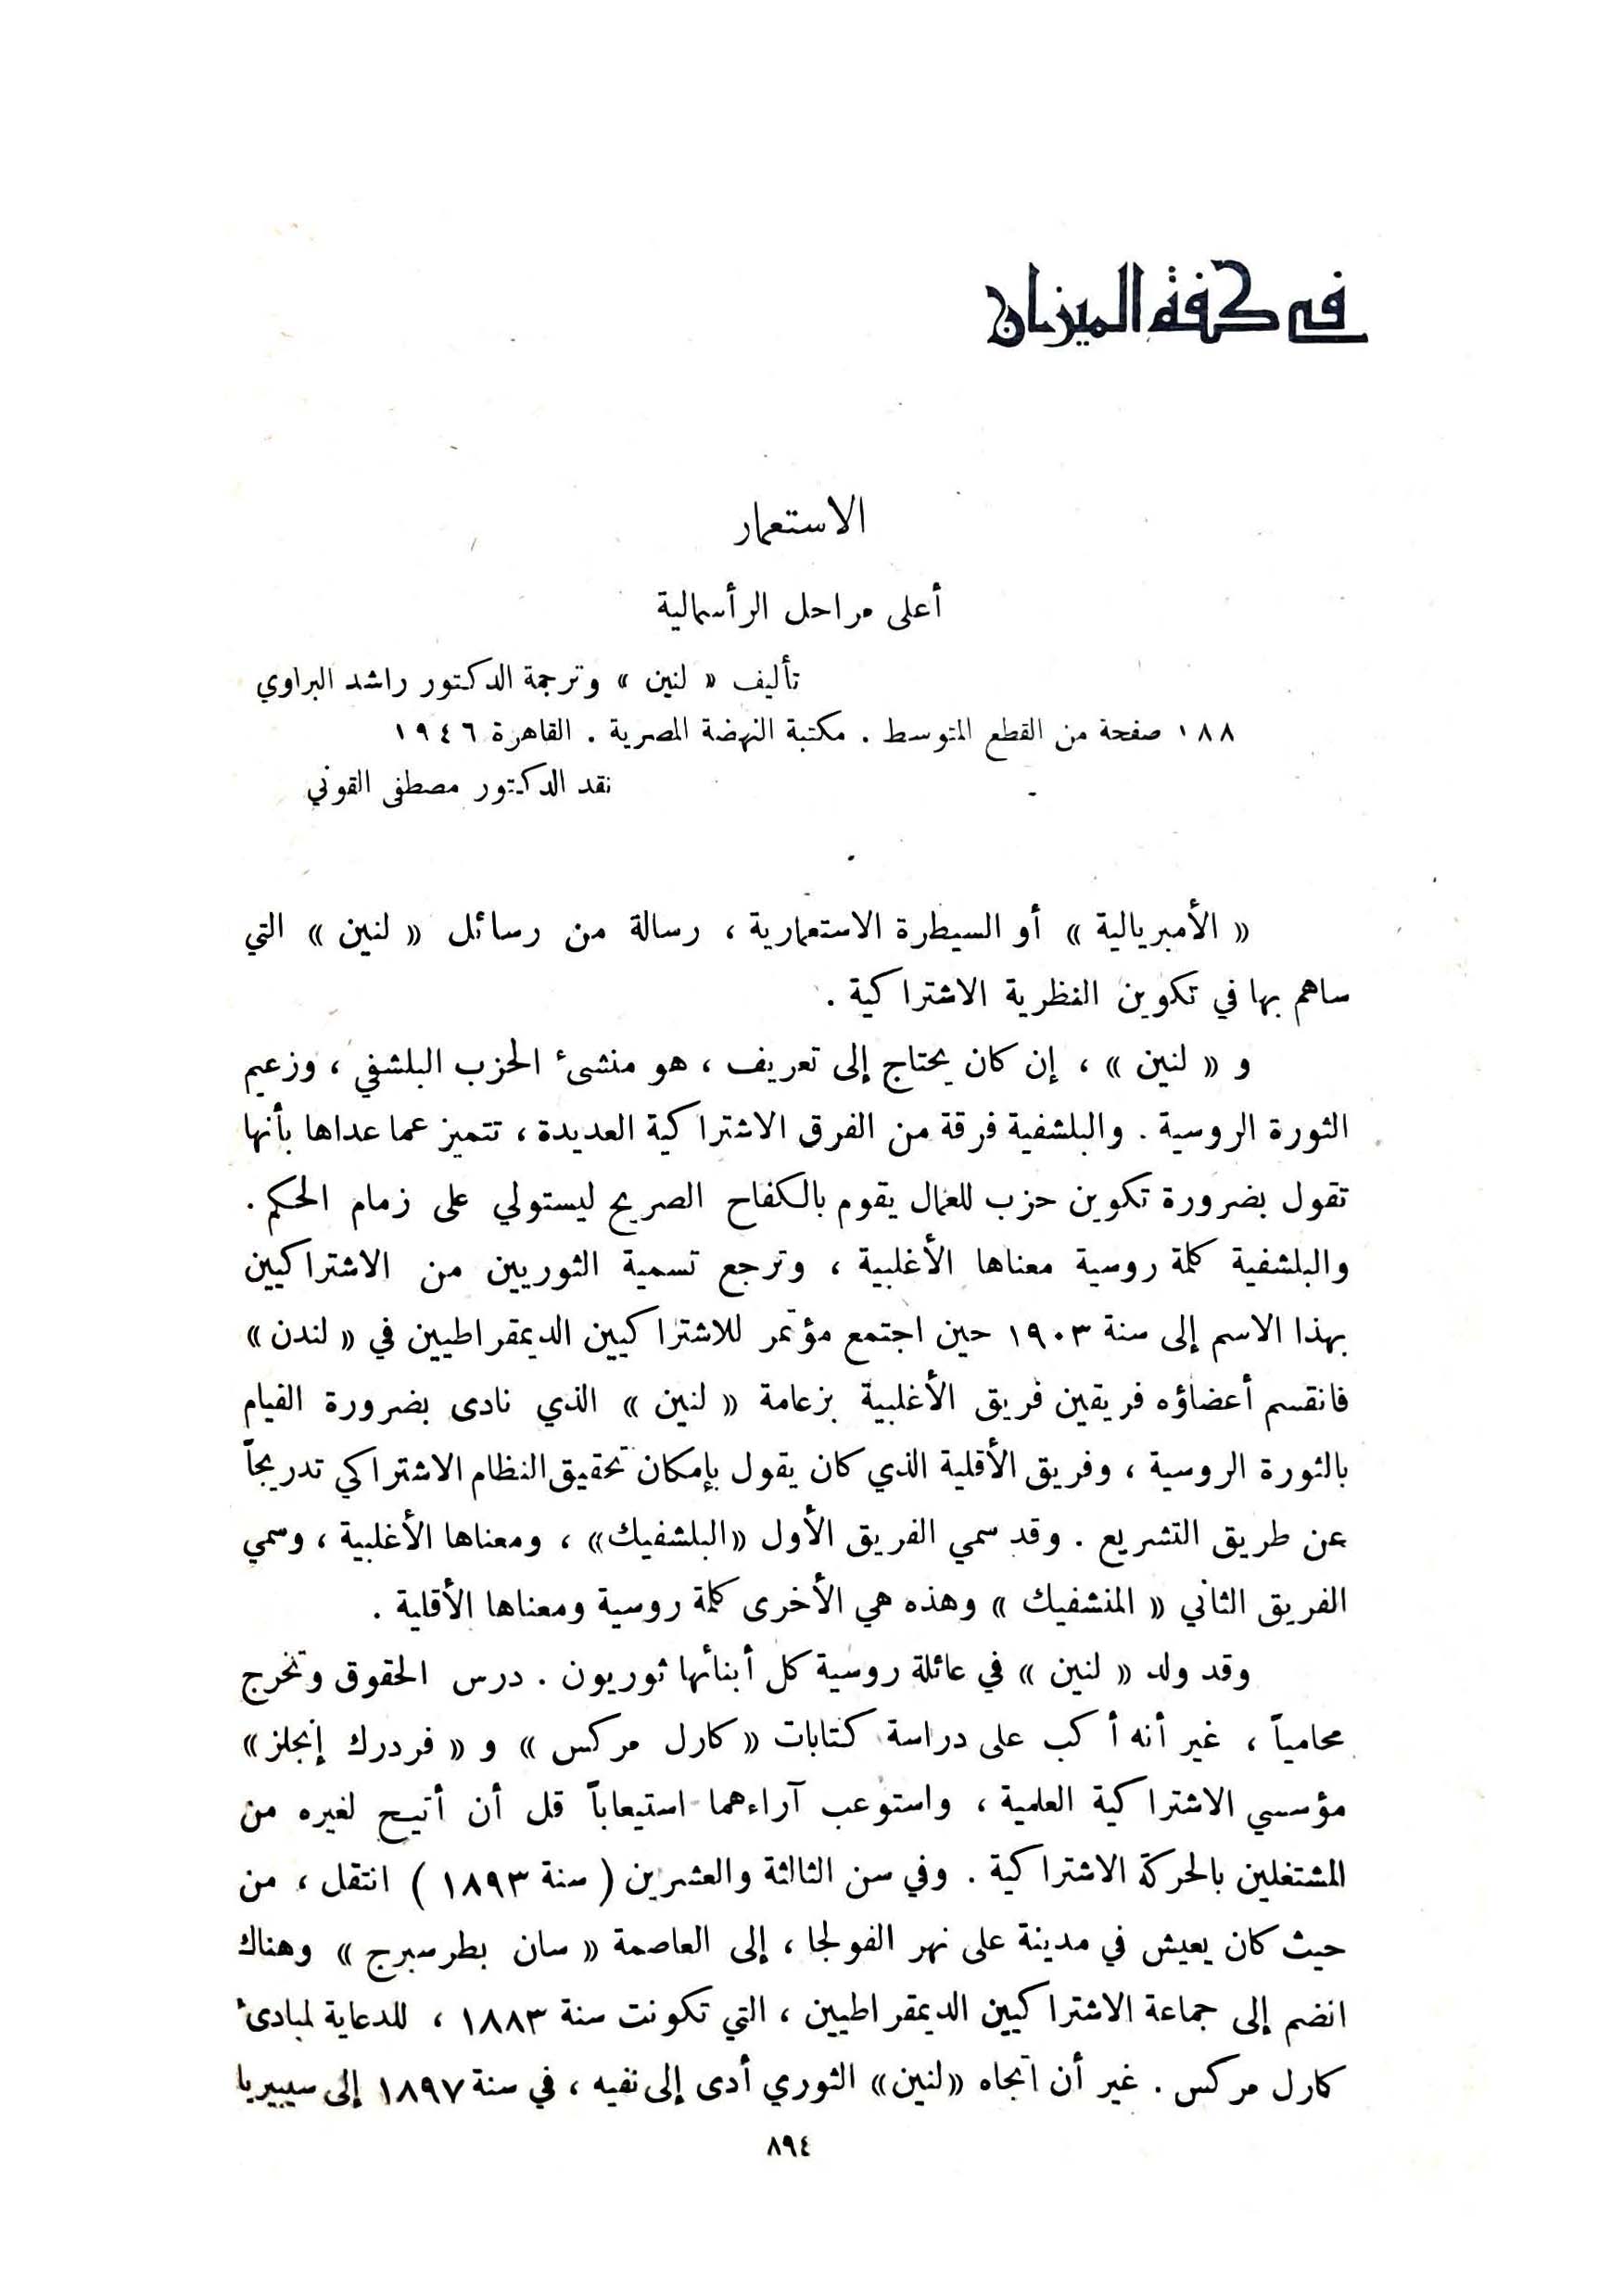 في كفة الميزان
الاستعمار
أعلى مراحل الرأسمالية
تأليف « لنين » وترجمة الدكتور راشد البراوي
١٨٨ صفحة من القطع المتوسط . مكتبة النهضة المصرية . القاهرة ١٩٤٦
نقد الدكتور مصطفى القوني
« الأمبريالية » أو السيطرة الاستعمارية ، رسالة من رسائل « لنين » التي
ساهم بها في تكوين النظرية الاشتراكية .
و « لنين » ، إن كان يحتاج إلى تعريف ، هو منشىء الحزب البلشفي ، وزعيم
الثورة الروسية . والبلشفية فرقة من الفرق الاشتراكية العديدة ، تتميز عما عداها بأنها
تقول بضرورة تكوين حزب للعمال يقوم بالكفاح الصريح ليستولي على زمام الحكم .
والبلشفية كلمة روسية معناها الأغلبية ، وترجع تسمية الثوريين من الاشتراكيين
بهذا الاسم إلى سنة ١٩٠٣ حين اجتمع مؤتمر للاشتراكيين الديمقراطيين في « لندن »
فانقسم أعضاؤه فريقين فريق الأغلبية بزعامة « لنين » الذي نادى بضرورة القيام
بالثورة الروسية ، وفريق الأقلية الذي كان يقول بإمكان تحقيق النظام الاشتراكي تدريجاً
عن طريق التشريع . وقد سمي الفريق الأول «البلشفيك» ، ومعناها الأغلبية ، وسمي
الفريق الثاني « المنشفيك » وهذه هي الأخرى كلمة روسية ومعناها الأقلية .
وقد ولد « لنين » في عائلة روسية كل أبنائها ثوريون . درس الحقوق وتخرج
محامياً ، غير أنه أكب على دراسة كتابات « كارل مركس » و « فردرك إنجلز »
مؤسسي الاشتراكية العلمية ، واستوعب آراءهما استيعاباً قل أن أتيح لغيره من
المشتغلين بالحركة الاشتراكية . وفي سن الثالثة والعشرين ( سنة ١٨٩٣ ) انتقل ، من
حيث كان يعيش في مدينة على نهر الفولجا ، إلى العاصمة « سان بطرسبرج » وهناك
انضم إلى جماعة الاشتراكيين الديمقراطيين ، التي تكونت سنة ١٨٨٣ ، للدعاية لمبادىء
كارل مركس . غير أن اتجاه «لنين» الثوري أدى إلى نفيه ، في سنة ١٨٩٧ إلى سيبيريا
٨٩٤